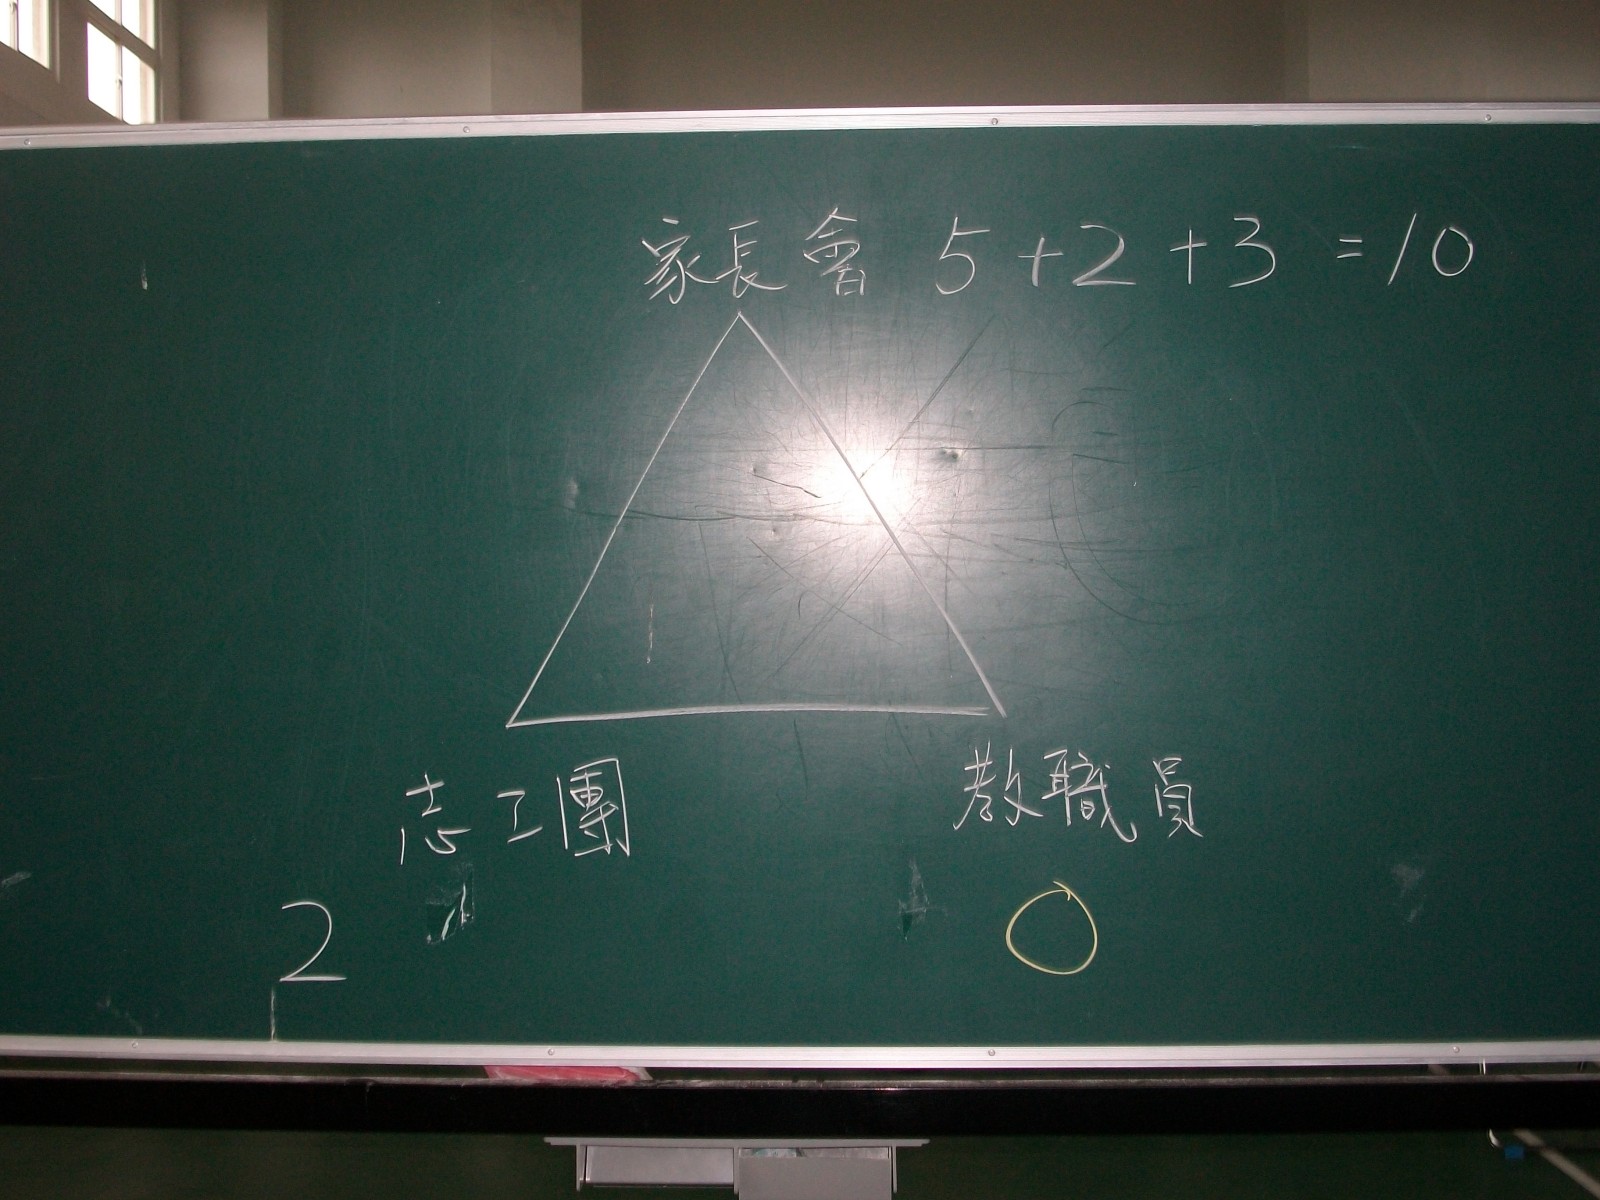 家長會 5+2+3=10
志工團 教職員
2 0